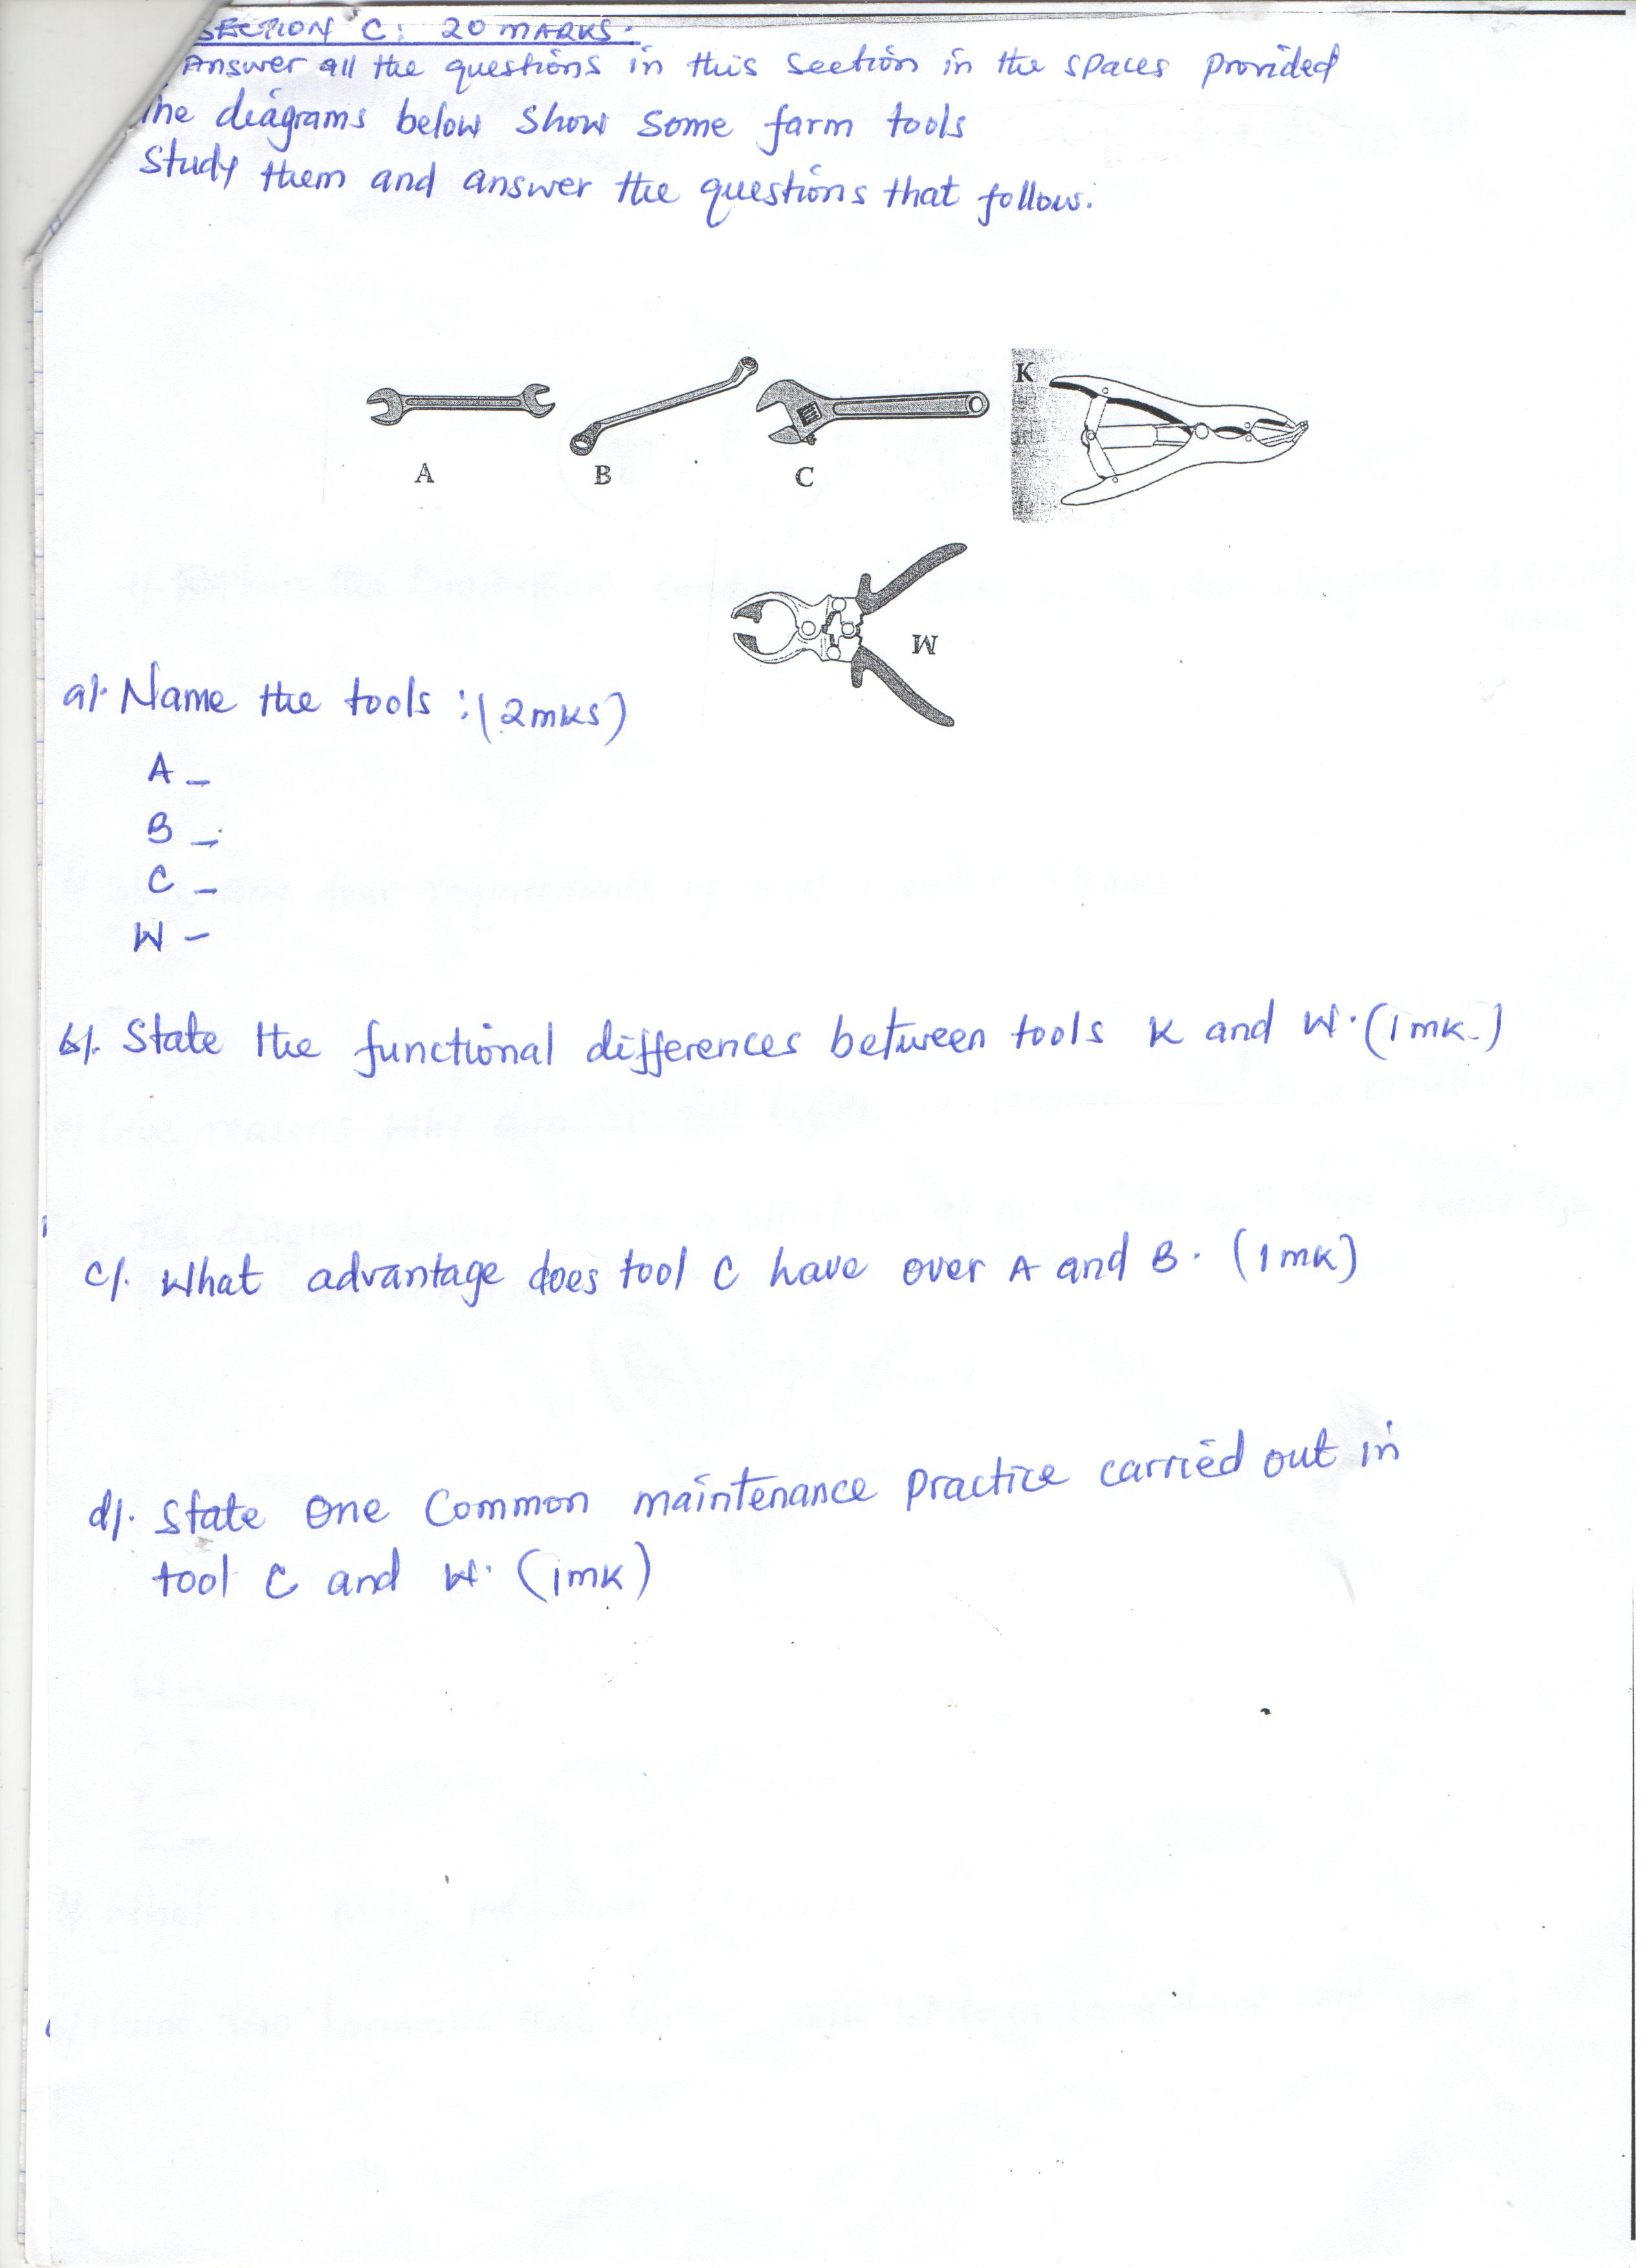 SECTION C: 20 MARKS.
Answer all the questions in this section in the spaces provided
The diagrams below show some farm tools
Study them and answer the questions that follow.
K
A
B
C
W
a). Name the tools : (2mks)
A –
B –
C –
W –
b). State the functional differences between tools K and W. (1mk.)
c). What advantage does tool C have over A and B. (1mk)
d). State one common maintenance practice carried out in
tool C and W. (1mk)